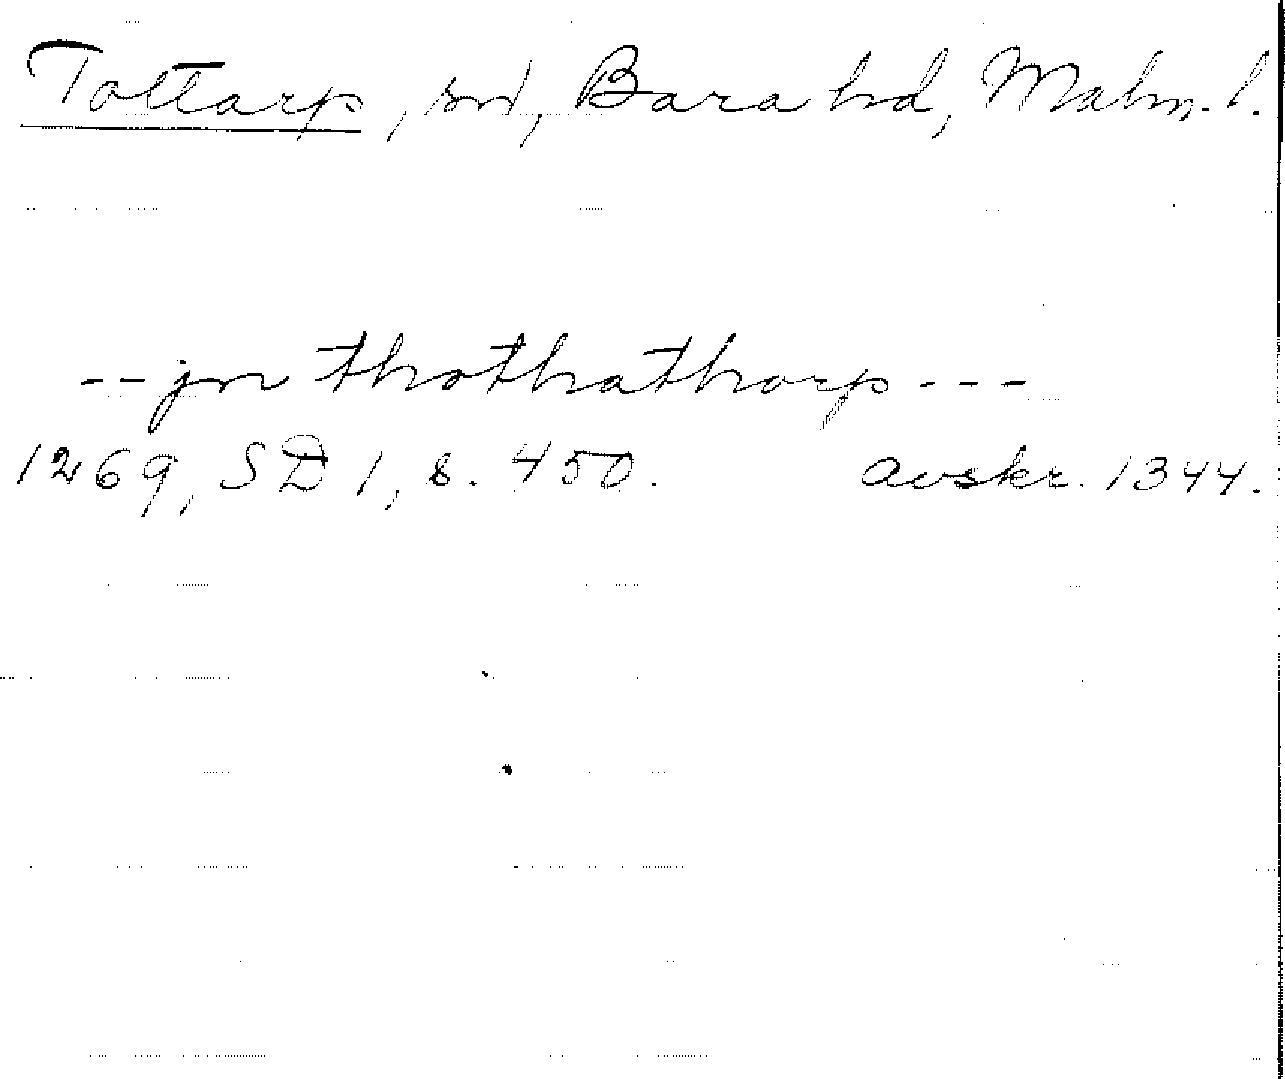 Tottarp, sn, Bara hd, Malm. l.
-- jn thothathorp ---
1269, SD 1, s. 450. avskr. 1344.